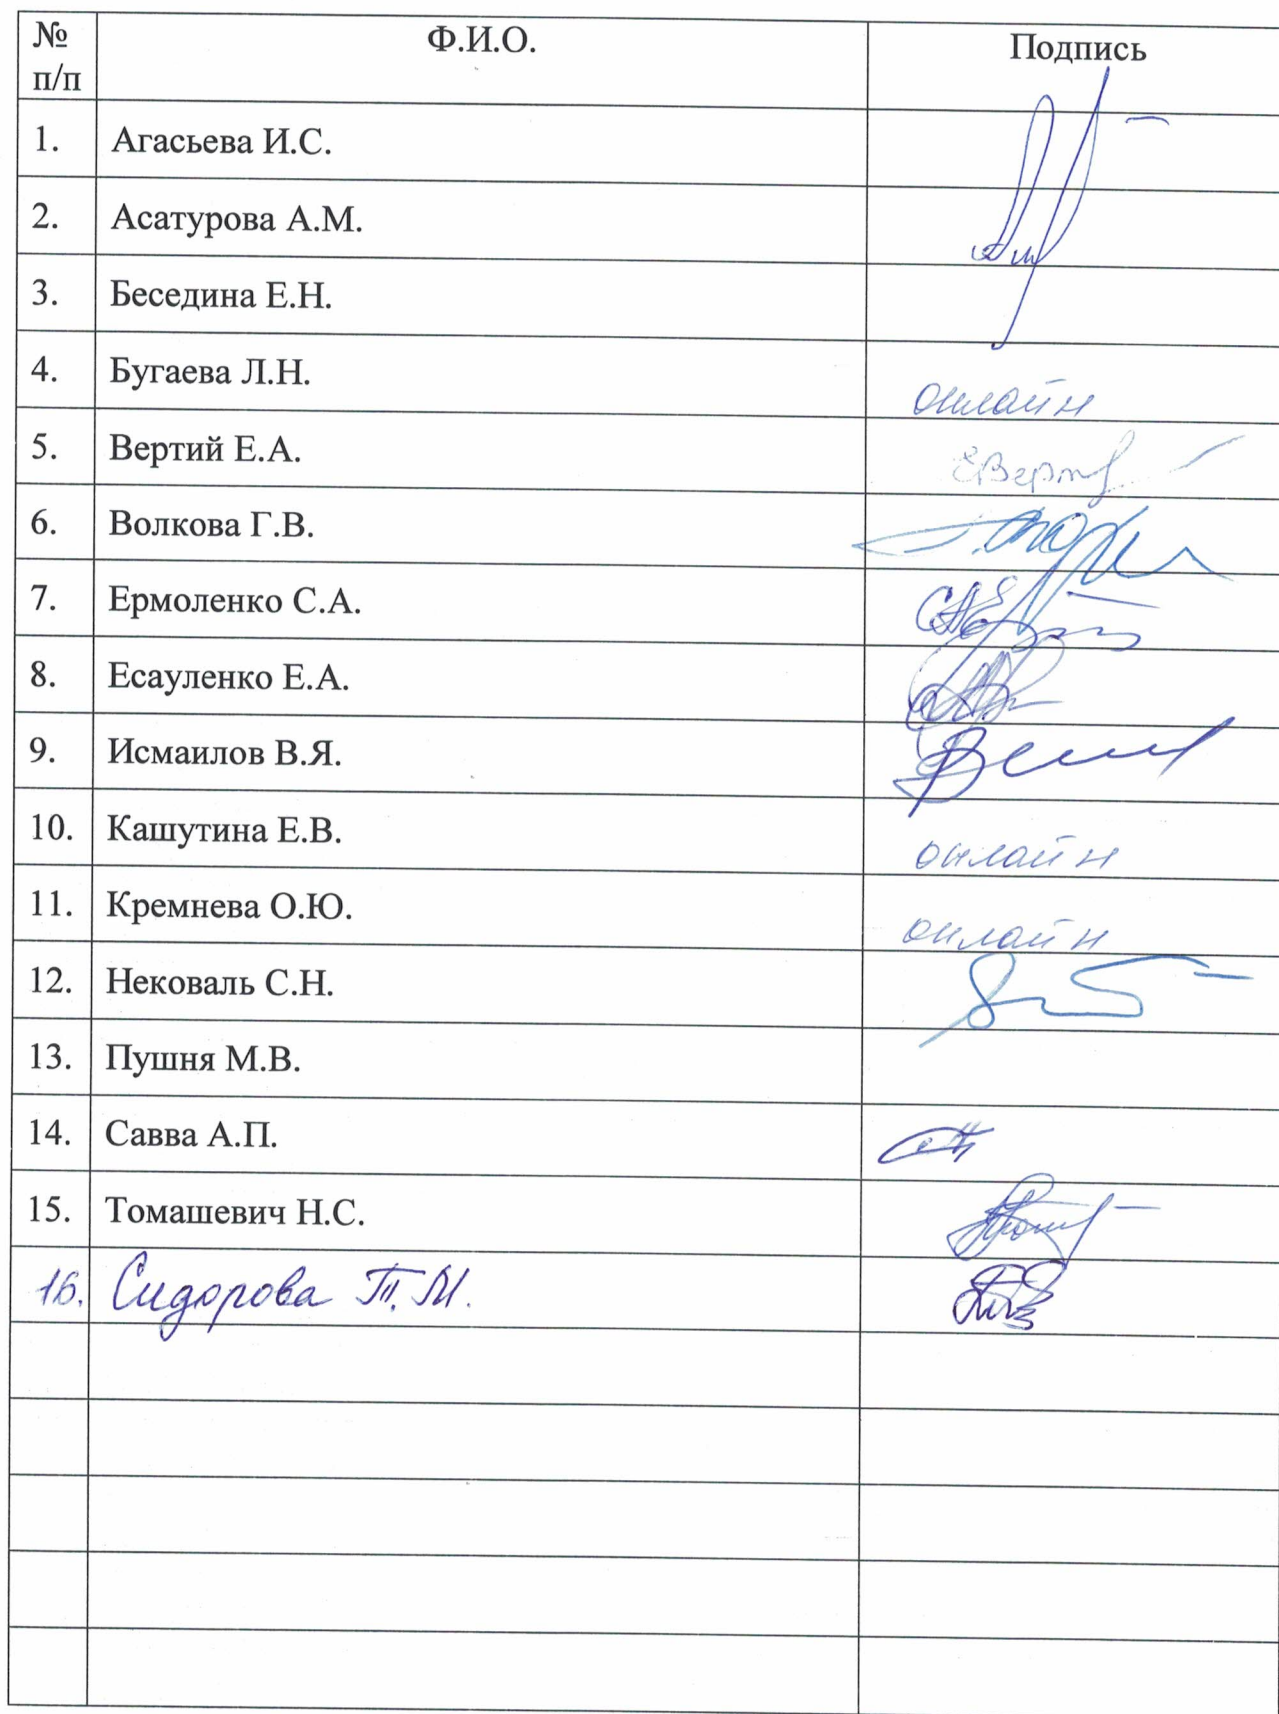 № п/п Ф.И.О. Подпись
1. Агасьева И.С.
2. Асатурова А.М.
3. Беседина Е.Н.
4. Бугаева Л.Н. онлайн
5. Вертий Е.А.
6. Волкова Г.В.
7. Ермоленко С.А.
8. Есауленко Е.А.
9. Исмаилов В.Я.
10. Кашутина Е.В. онлайн
11. Кремнева О.Ю. онлайн
12. Нековаль С.Н.
13. Пушня М.В.
14. Савва А.П.
15. Томашевич Н.С.
16. Сидорова Т.М.